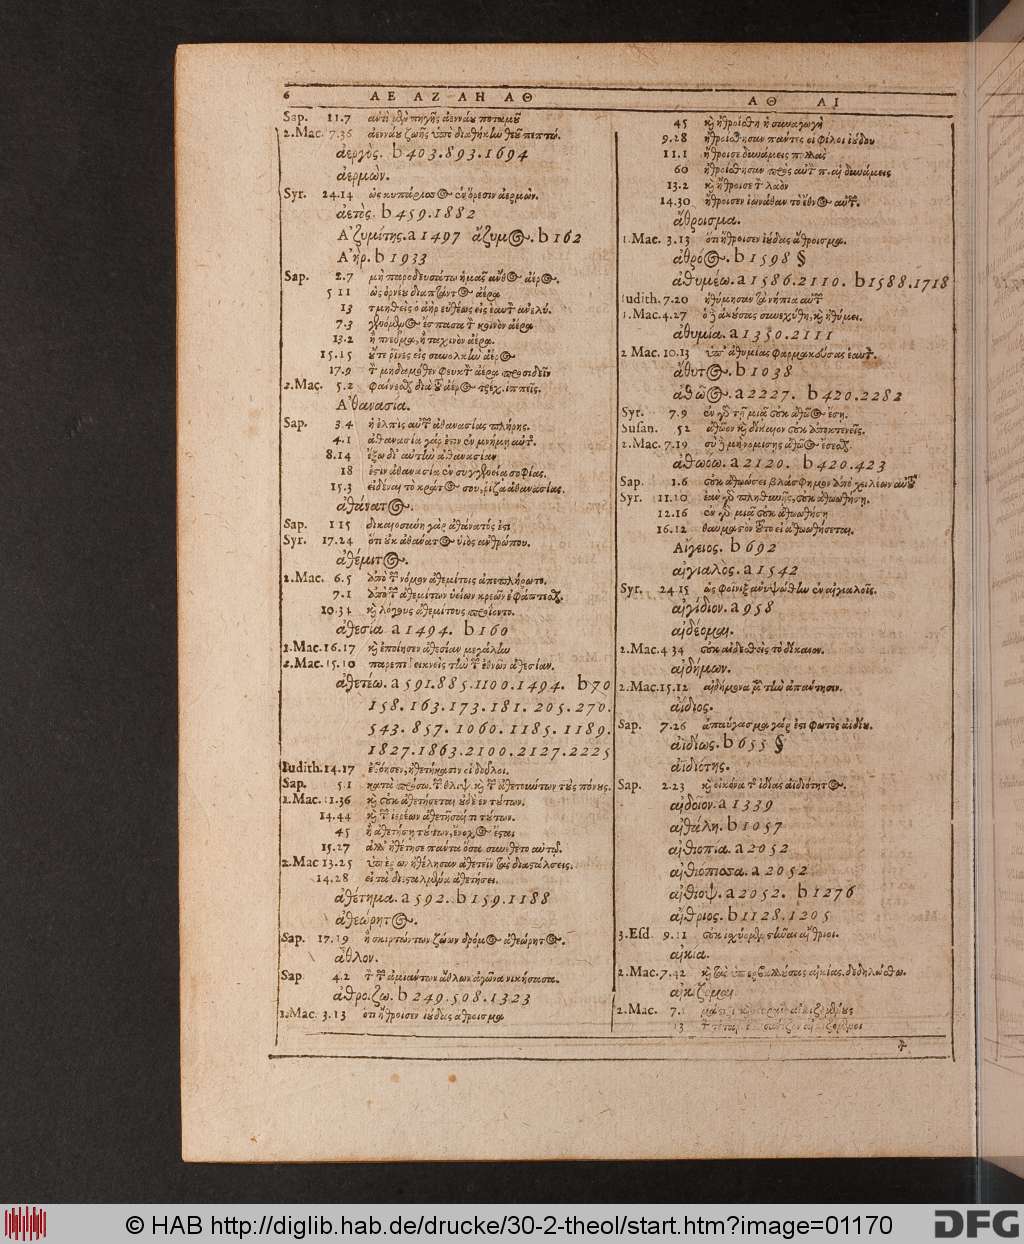 6 ΑΕ ΑΖ ΑΗ ΑΘ
Sap. 11.7 πηγῆς ἀεννάου ποταμοῦ
2.Mac. 7.36 ἀεννάου ζωῆς ὑπὸ διαθήκην θεοῦ
ἀεργὸς. b 403.893.1694
ἀερμῶν.
Syr. 24.14 ὡς κυπάρισσος ἐν ὄρεσιν ἀερμῶν.
ἀετὸς. b 459.1882
Ἀζυμίτης. a 1497 ἄζυμος. b 162
Ἀὴρ. b 1933
Sap. 2.7 μὴ παροδευσάτω ἡμᾶς ἄνθος ἀέρος.
5 11 ὡς ὀρνέου διαπτάντος ἀέρα
13 τμηθεὶς ὁ ἀὴρ εὐθέως εἰς ἑαυτὸν ἀνελύ.
7.3 γενόμενος ἔσπασα τὸν κοινὸν ἀέρα
13.2 ἢ πνεῦμα, ἢ ταχινὸν ἀέρα.
15.15 οὔτε ῥῖνες εἰς συνολκὴν ἀέρος
17.9 τὸν μηδαμόθεν φευκτὸν ἀέρα προσιδεῖν
2.Mac. 5.2 διὰ τοῦ ἀέρος τρέχ. ἱππεῖς.
Ἀθανασία.
Sap. 3.4 ἡ ἐλπὶς αὐτῶν ἀθανασίας πλήρης.
4.1 ἀθανασία γάρ ἐστιν ἐν μνήμῃ αὐτῆς.
8.14 ἕξω δι' αὐτὴν ἀθανασίαν
18 ἐστιν ἀθανασία ἐν συγγενείᾳ σοφίας.
15.3 εἰδέναι τὸ κράτος σου, ῥίζα ἀθανασίας.
ἀθάνατος.
Sap. 1 15 δικαιοσύνη γὰρ ἀθάνατός ἐστι
Syr. 17.24 ὅτι οὐκ ἀθάνατος υἱὸς ἀνθρώπου.
ἀθέμιτος.
2.Mac. 6.5 ἀπὸ τῶν νόμων ἀθεμίτοις ἀπεπλήρωτο.
7.1 ἀπὸ τῶν ἀθεμίτων ὑείων κρεῶν ἐφάπτεσθαι
10.34 καὶ λόγους ἀθεμίτους προίεντο.
ἀθεσία a 1494. b 160
1.Mac. 16.17 καὶ ἐποίησεν ἀθεσίαν μεγάλην
2.Mac. 15.10 τὴν τῶν ἐθνῶν ἀθεσίαν.
ἀθετέω. a 591.885.1100.1494. b 70
158.163.173.181. 205.270.
543. 857. 1060. 1185. 1189.
1827.1863.2100.2127.2225
Iudith. 14.17 ἐβόησεν, ἠθετήκασιν οἱ δοῦλοι.
Sap. 5 1 τῶν θλιψ. καὶ τῶν ἀθετούντων τοὺς πόνους.
1.Mac. 11.36 καὶ οὐκ ἀθετήσεται οὐδὲ ἓν τούτων.
14.44 καὶ τῶν ἱερέων ἀθετῆσαί τι τούτων.
45 ἢ ἀθετήσῃ τούτων, ἔνοχος ἔσται
15.27 ἀλλ' ἠθέτησε πάντα ὅσα συνέθετο αὐτῷ.
2.Mac 13.25 ἠθέλησαν ἀθετεῖν τὰς διαστάλσεις.
14.28 εἰ τὰ διεσταλμένα ἀθετήσει.
ἀθέτημα. a 592. b 159.1188
ἀθεώρητος.
Sap. 17.19 ἢ σκιρτώντων ζώων δρόμος ἀθεώρητος.
ἆθλον.
Sap 4.2 τὸν τῶν ἀμιάντων ἄθλων ἀγῶνα νικήσασα.
ἀθροίζω. b 249.508.1323
1.Mac. 3.13 ὅτι ἤθροισεν ἰούδας ἄθροισμα
ΑΘ ΑΙ
45 καὶ ἠθροίσθη ἡ συναγωγὴ
9.28 ἠθροίσθησαν πάντες οἱ φίλοι ἰούδου
11.1 ἤθροισε δυνάμεις πολλὰς
60 ἠθροίσθησαν πρὸς αὐτὸν π. αἱ δυνάμεις
13.2 καὶ ἤθροισε τὸν λαὸν
14.30 ἤθροισεν ἰωνάθαν τὸ ἔθνος αὐτῶν.
ἄθροισμα.
1.Mac. 3.13 ὅτι ἤθροισεν ἰούδας ἄθροισμα.
ἀθρόος. b 1598 §
ἀθυμέω. a 1586.2110. b 1588.1718
Iudith. 7.20 ἠθύμησαν τὰ νήπια αὐτῶν
1.Mac. 4.27 ὁ δὲ ἀκούσας συνεχύθη, καὶ ἠθύμει.
ἀθυμία. a 1350.2111
2 Mac. 10.13 ὑπ' ἀθυμίας φαρμακεύσας ἑαυτὸν.
ἄθυτος. b 1038
ἀθῶος. a 2227. b 420.2282
Syr. 7.9 ἐν γὰρ τῇ μιᾷ οὐκ ἀθῶος ἔσῃ.
Susan. 52 ἀθῶον καὶ δίκαιον οὐκ ἀποκτενεῖς.
2.Mac. 7.19 σὺ δὲ μὴ νομίσῃς ἀθῶος ἔσεσθαι.
ἀθωόω. a 2120. b 420.423
Sap. 1.6 οὐκ ἀθωώσει βλάσφημον ἀπὸ χειλέων αὐτοῦ
Syr. 11.10 ἐὰν γὰρ πληθυνῇς, οὐκ ἀθωωθήσῃ.
12.16 ἐν γὰρ μιᾷ οὐκ ἀθωωθήσῃ
16.12 θαυμαστὸν τοῦτο εἰ ἀθωωθήσεται.
Αἴγειος. b 692
αἰγιαλὸς. a 1542
Syr. 24 15 ὡς φοίνιξ ἀνυψώθην ἐν αἰγιαλοῖς.
αἰγίδιον. a 958
αἰδέομαι.
2.Mac. 4 34 οὐκ αἰδεσθεὶς τὸ δίκαιον.
αἰδήμων.
2.Mac. 15.12 αἰδήμονα μὲν τὴν ἀπάντησιν.
ἀΐδιος.
Sap. 7.26 ἀπαύγασμα γάρ ἐστι φωτὸς ἀϊδίου.
ἀϊδίως. b 655 §
ἀϊδιότης.
Sap. 2.23 καὶ εἰκόνα τῆς ἰδίας ἀϊδιότητος.
αἰδοῖον. a 1339
αἰθάλη. b 1057
αἰθιοπία. a 2052
αἰθιόπισσα. a 2052
αἰθίοψ. a 2052. b 1276
αἴθριος. b 1128.1205
3.Esd 9.11 οὐκ ἰσχύομεν στῆναι αἴθριοι.
αἰκία.
2.Mac. 7.42 αἰκίας. δεδηλώσθω.
αἰκίζομαι
2.Mac. 7.1
13